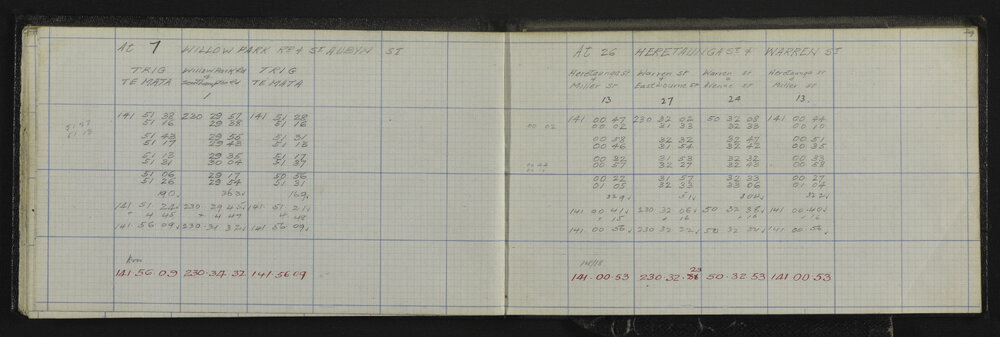 At 7 WILLOW PARK RD & ST AUBYN ST
TRIG Willow Park Rd TRIG
TE MATA & Southampton TE MATA
1
141 51 38 230 29 57 141 51 28
51 16 29 38 51 16
51 43 29 56 51 31
51 17 29 43 51 13
51 13 29 35 51 17
51 31 30 04 51 37
51 06 29 17 50 56
51 26 29 54 51 31
190 363 169
141 51 24 230 29 45 141 51 21
+ 4 45 + 4 47 4 48
141 56 09 230 34 32 141 56 09
141·56·09 230·34·32 141·56 09
At 26 HERETAUNGA ST & WARREN ST
Heretaunga St Warren St Warren St Heretaunga St
& & & &
Miller St Eastbourne St Avenue St Miller St
13 27 24 13
141 00 47 230 32 02 50 32 08 141 00 44
00 02 31 33 32 33 00 10
00 58 32 32 32 47 00 51
00 46 31 54 32 42 00 35
00 32 31 53 32 32 00 33
00 57 32 27 32 43 00 58
00 22 31 57 32 33 00 27
01 05 32 33 33 06 01 04
329 51 304 322
141 00 41 230 32 06 50 32 38 141 00 40
+ 15 + 16 + 16 + 16
141 00 56 230 32 22 50 32 54 141 00 56
23
141·00·53 230·32· 50·32·53 141·00·53